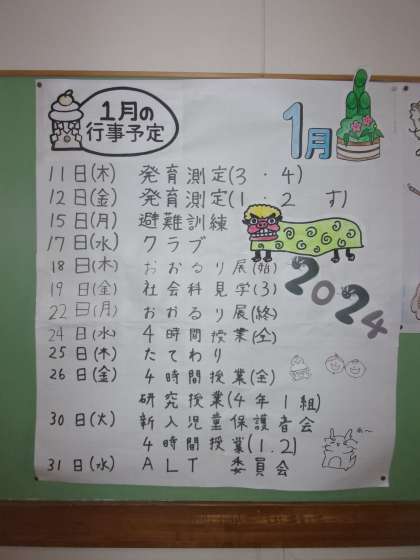 1月の
行事予定
1月
11日(木) 発育測定(3・4)
12日(金) 発育測定(1・2 す)
15日(月) 避難訓練
17日(水) クラブ
18日(木) おおるり展(始)
19日(金) 社会科見学(3)
22日(月) おおるり展(終)
24日(水) 4時間授業(全)
25日(木) たてわり
26日(金) 4時間授業(全)
研究授業(4年1組)
30日(火) 新入児童保護者会
4時間授業(1.2)
31日(水) ALT 委員会
2024